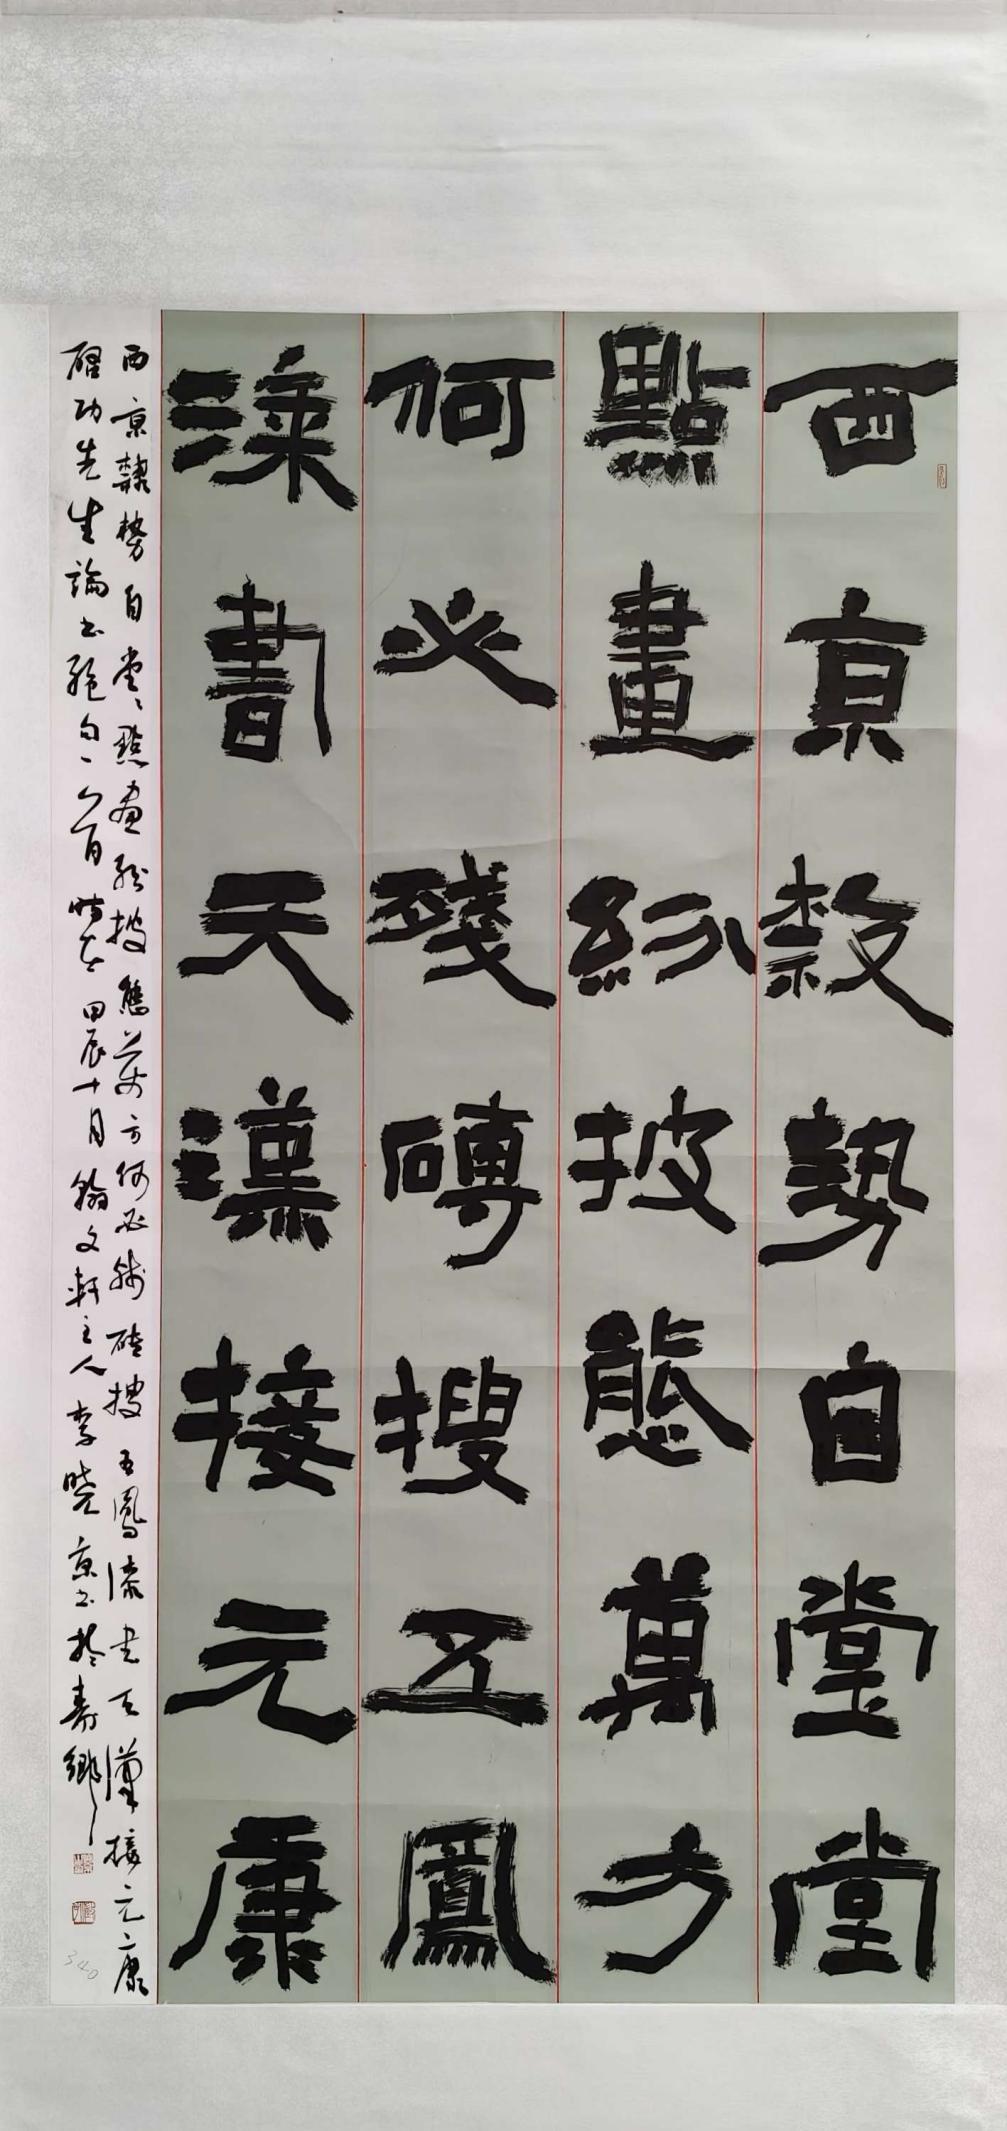 西京隸勢自堂堂
點畫紛披態萬方
何必殘磚搜五鳳
漆書天漢接元康
西京隸勢自堂〻點畫紛披態萬方何必殘磚搜五鳳漆書天漢接元康
啟功先生論書絕句一 時在甲辰十月翰文軒主人李曉京書於壽鄉
340